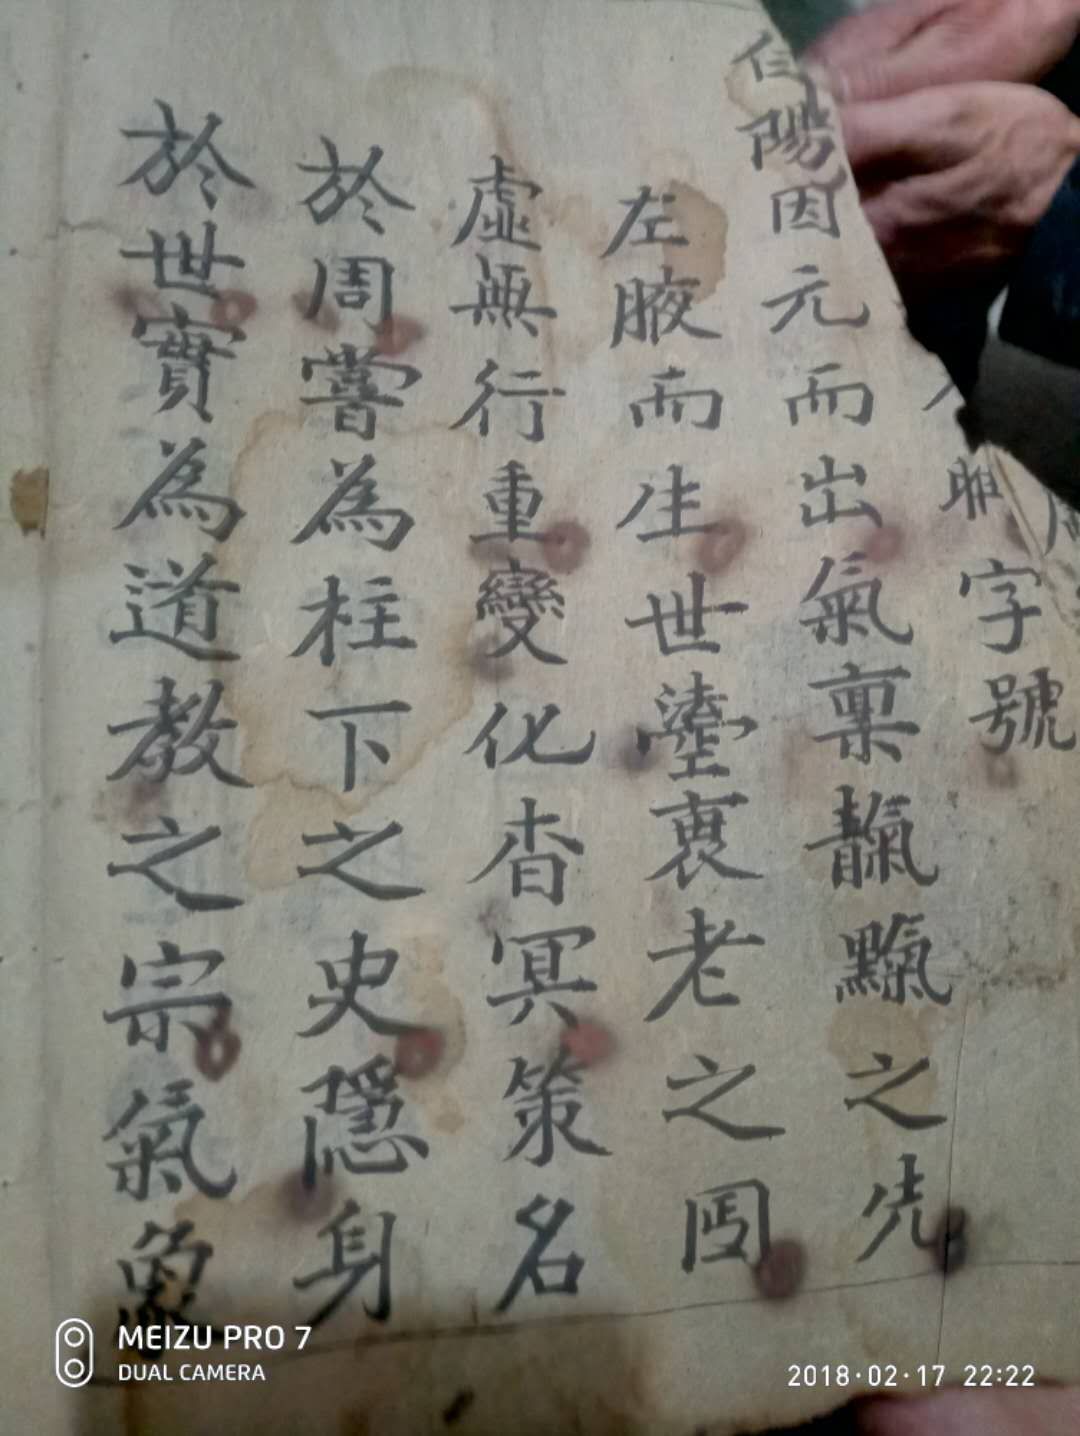 字號
陽因元而出氣稟靝𪐗之先
左腋而生世𡋯裏老之囯
虛無行重變化杳冥策名
於周嘗為柱下之史隱身
於世實為道教之宗氣象
MEIZU PRO 7
DUAL CAMERA
2018·02·17 22:22